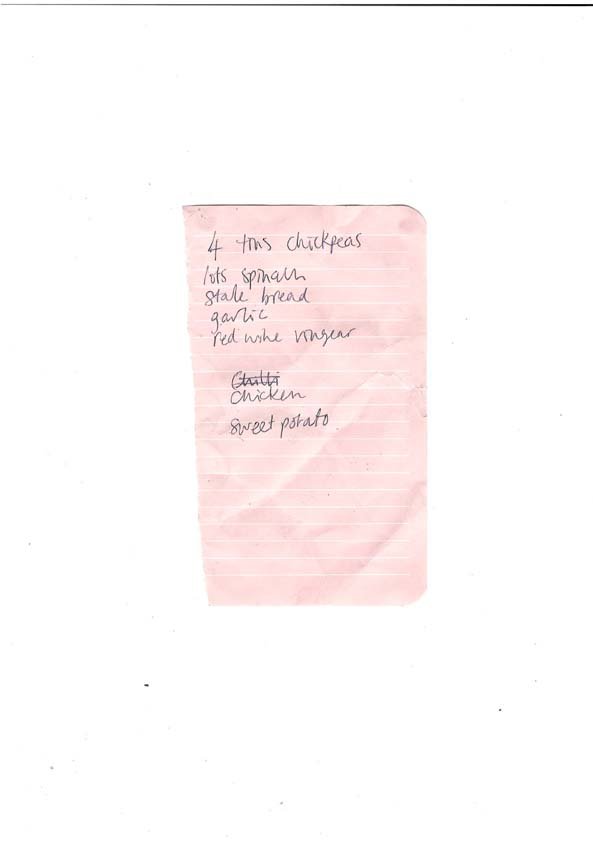 4 tins chickpeas
lots spinach
stale bread
garlic
red wine vingear
Chilli
chicken
sweet potato